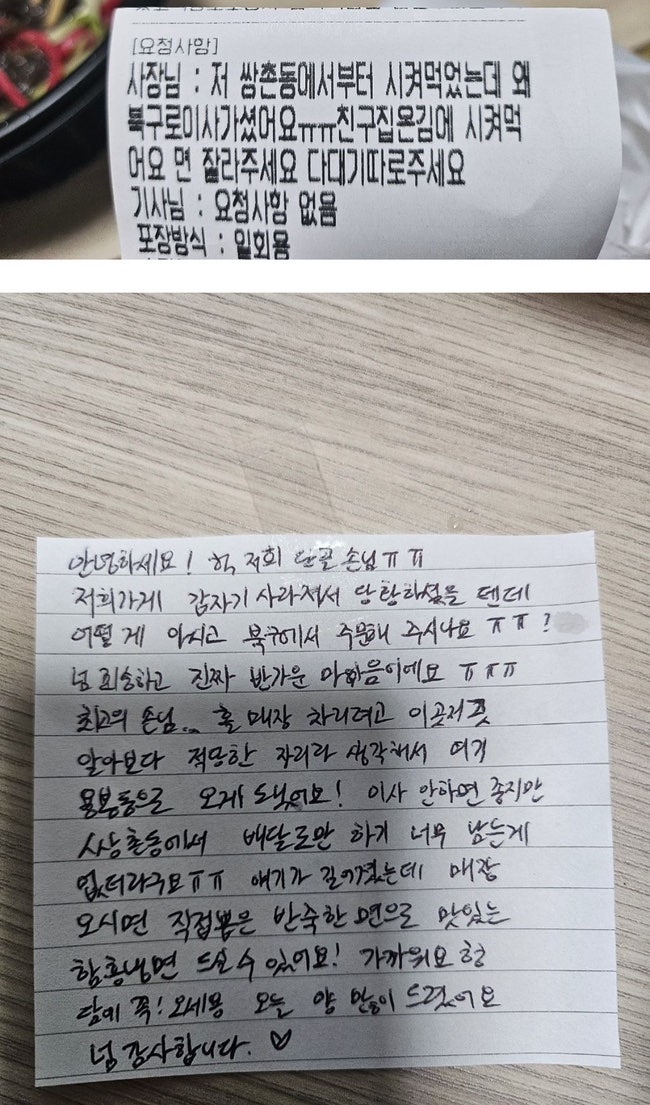 [요청사항]
사장님 : 저 쌍촌동에서부터 시켜먹었는데 왜
북구로이사가셨어요ㅠㅠ친구집온김에 시켜먹
어요 면 잘라주세요 다대기따로주세요
기사님 : 요청사항 없음
포장방식 : 일회용
안녕하세요! 헉 저희 단골 손님 ㅠㅠ
저희가게 갑자기 사라져서 당황하셨을 텐데
어떻게 아시고 북구에서 주문해 주시나요 ㅠㅠ?
넘 죄송하고 진짜 반가운 마음이에요 ㅠㅠㅠ
최고의 손님.. 홀 매장 차리려고 이곳저곳
알아보다 적당한 자리라 생각해서 여기
용봉동으로 오게 됐어요! 이사 안하면 좋지만
쌍촌동에서 배달로만 하기 너무 남는게
없더라구요ㅠㅠ 얘기가 길어졌는데 매장
오시면 직접뽑은 반죽한 면으로 맛있는
함흥냉면 드실 수 있어요! 가까워요 헝
담에 꼭! 오세용 오늘 양 많이 드렸어요
넘 감사합니다. ♡